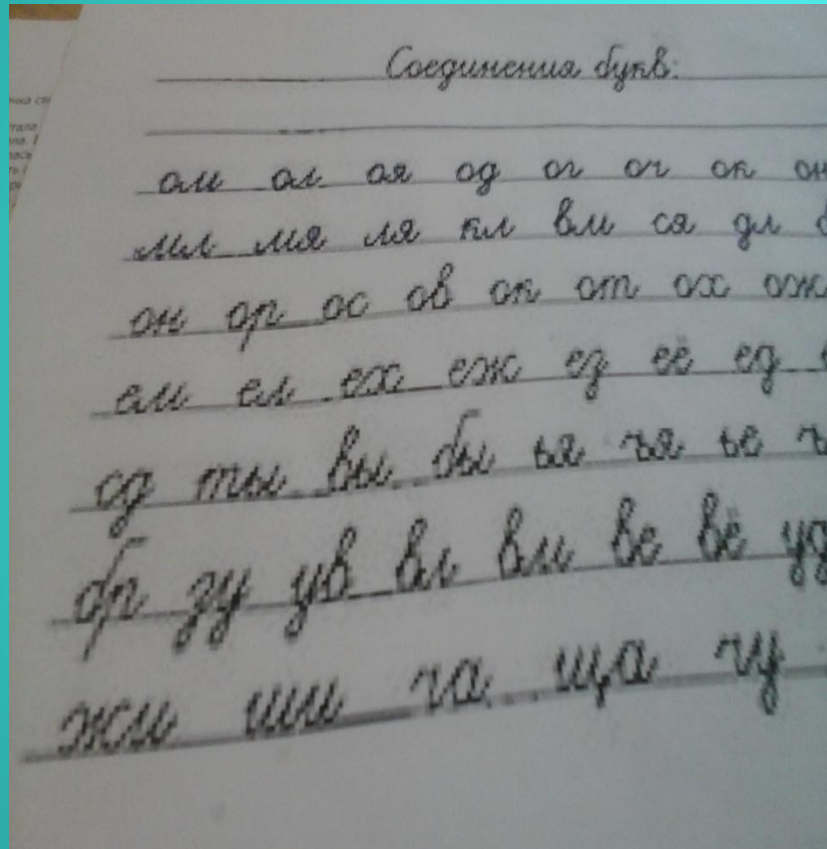 Соединения букв:
ом ол оя од ог ог ок он
мл мя ля кл вм ся дл
он ор ос ов ок от ох ож
ем ел ех еж ез её ед
сд ты вы бы ья ъя ье
бр зу ув вл вм ве вё уд
жи ши ча ща чу